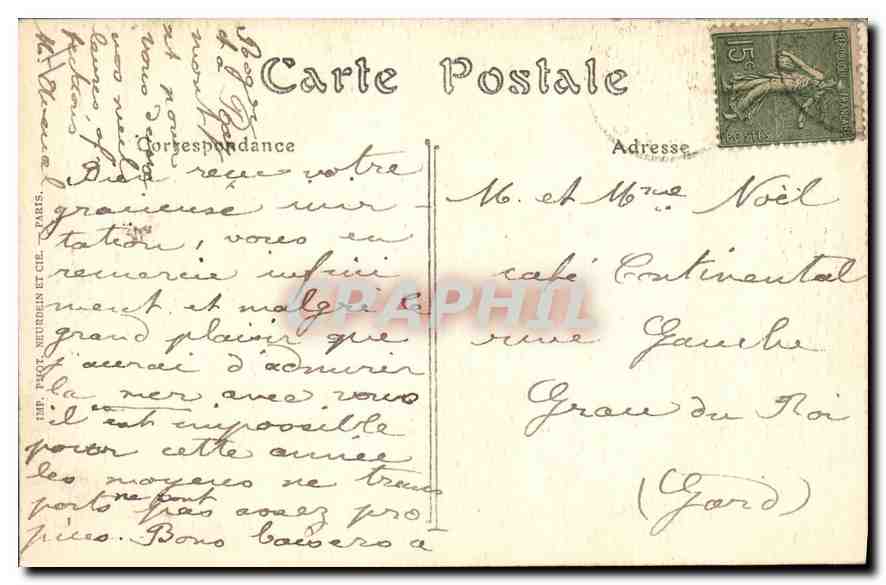 Carte Postale
Correspondance
Adresse
RÉPUBLIQUE FRANÇAISE
15c
POSTES
Bien reçu votre
gracieuse invi-
tation, vous en
remercie infini
ment et malgré le
grand plaisir que
j'aurai d'admirer
la mer avec vous
il est impossible
pour cette année
les moyens ne trans
ports ne sont pas assez pro
pices. Bons baisers à
Roger
et à
et pour
vous deux
vos meil
leures af
fections
M.
M. et Mme Noël
café Continental
rue Gauche
Grau du Roi
(Gard)
IMP. PHOT. NEURDEIN ET CIE. — PARIS.
CPAPHIL